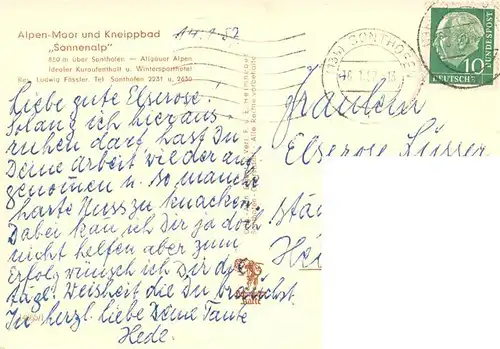 Alpen-Moor und Kneippbad
„Sonnenalp“
850 m über Sonthofen — Allgäuer Alpen
Idealer Kuraufenthalt u. Wintersporthotel
Bes. Ludwig Fässler, Tel. Sonthofen 2231 u. 2630
14.1.57
Liebe gute Elserose!
Solang ich hier aus-
ruhen darf hast Du
Deine Arbeit wieder auf-
genommen u. so manche
harte Nuss zu knacken.
Dabei kann ich Dir ja doch
nicht helfen aber zum
Erfolg wünsch ich Dir die
tägl. Weisheit die Du brauchst.
In herzl. Liebe Deine Tante
Hede.
Alle Rechte vorbehalten
SONTHOFEN
10
DEUTSCHE BUNDESPOST
Fräulein
Elserose